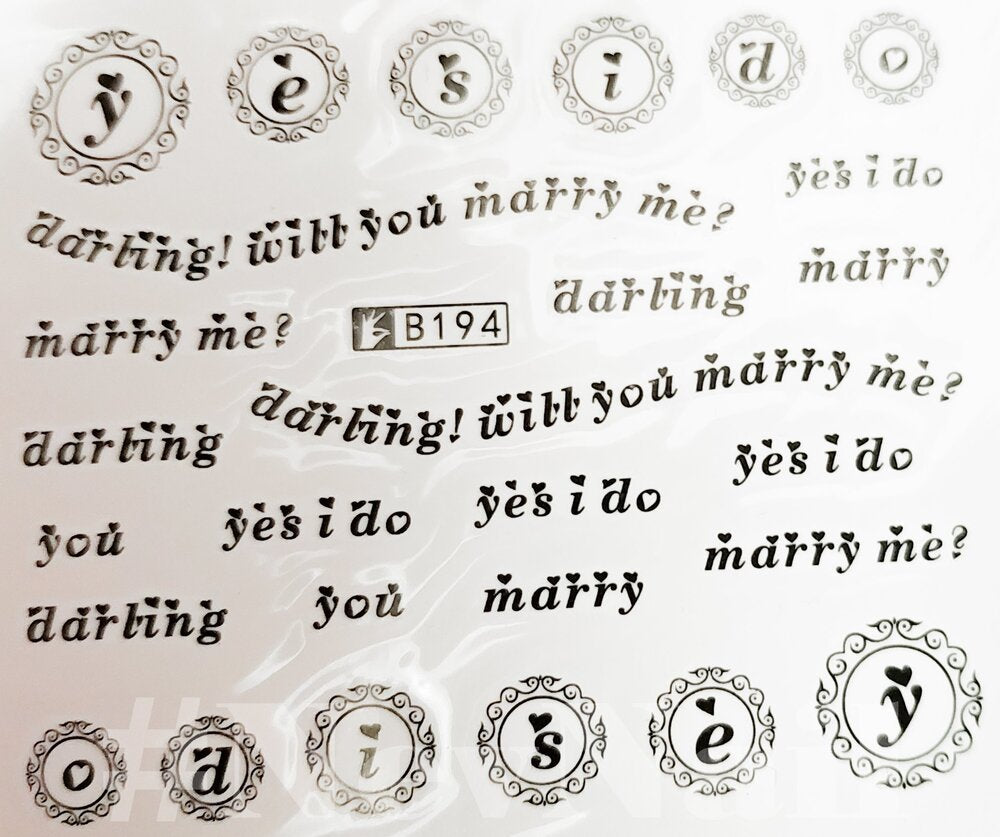 y e s i d o
yes i do
darling! will you marry me?
marry
darling
marry me?
B194
darling! will you marry me?
darling
yes i do
yes i do
yes i do
you
marry me?
marry
you
darling
o d i s e y